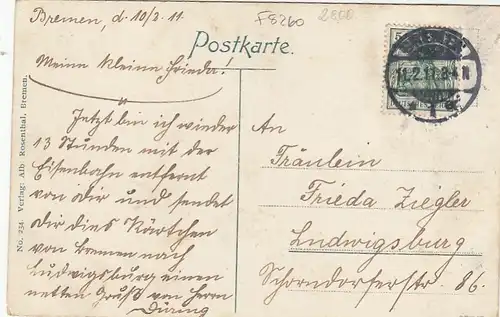 Bremen, d. 10/2. 11.
F5260
2500
Postkarte.
Meine kleine Frieda!
Jetzt bin ich wieder
13 Stunden mit der
Eisenbahn entfernt
von dir und sendet
dir dies Kärtchen
von Bremen nach
Ludwigsburg einen
netten Gruß von Herrn
Düring
An
Fräulein
Frieda Ziegler
Ludwigsburg
Schorndorferstr. 86.
BREMEN
11.2.11.3-4N
1
No. 234 Verlag: Alb. Rosenthal, Bremen.